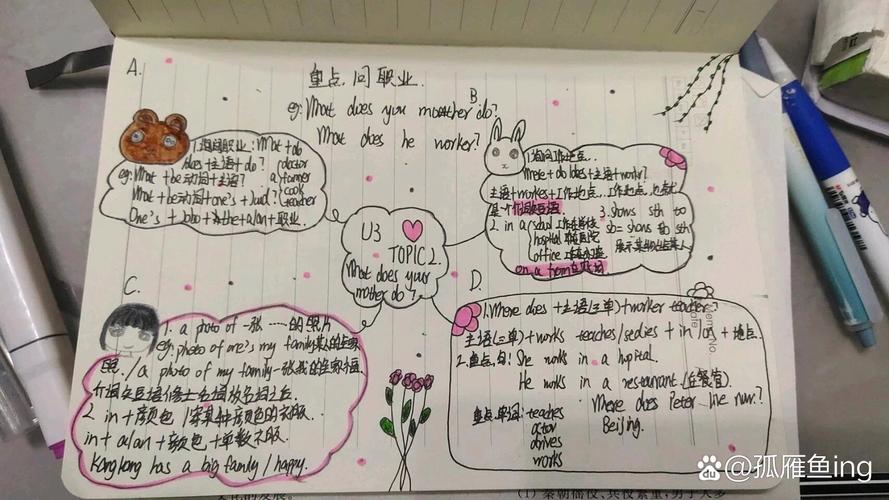 A.
重点问职业
B
eg: What does you moether do?
What does he worker?
1.询问职业: What + do
does + 主语 + do? doctor
eg: What + be动词 + 主语? a farmer
What + be动词 + one's + cook
teacher
One's + + a/an + 职业.
1.询问工作地点...
Where + do/does + 主语 + worker?
主语 + workes + 工作地点...工作地点
是一个介词短语. 3. shows sth to
2. in a
hospital sb = shows sb sth
office
on a farm
U3
TOPIC 2.
What does your
mother do?
C.
1. a photo of 一张……的照片
eg: photo of one's my family某人的全家
照./ a photo of my family 一张我的全家福.
介词短语修士名词放名词之后.
2 in + 颜色 /穿某种颜色的衣服.
in + a/an + 颜色 + 单数衣服.
Kangkang has a big family / happy.
D.
1. Where does + 主语(三单) + worker teacher?
主语(三单) + works teaches/sedies + in /on + 地点.
2.重点句: She works in a hopital.
He works in a restaurant (在餐馆).
重点单词: teaches Where does Peter live now?
actor Beijing.
drives
works
Memo
Date
(1)
@孤雁鱼ing